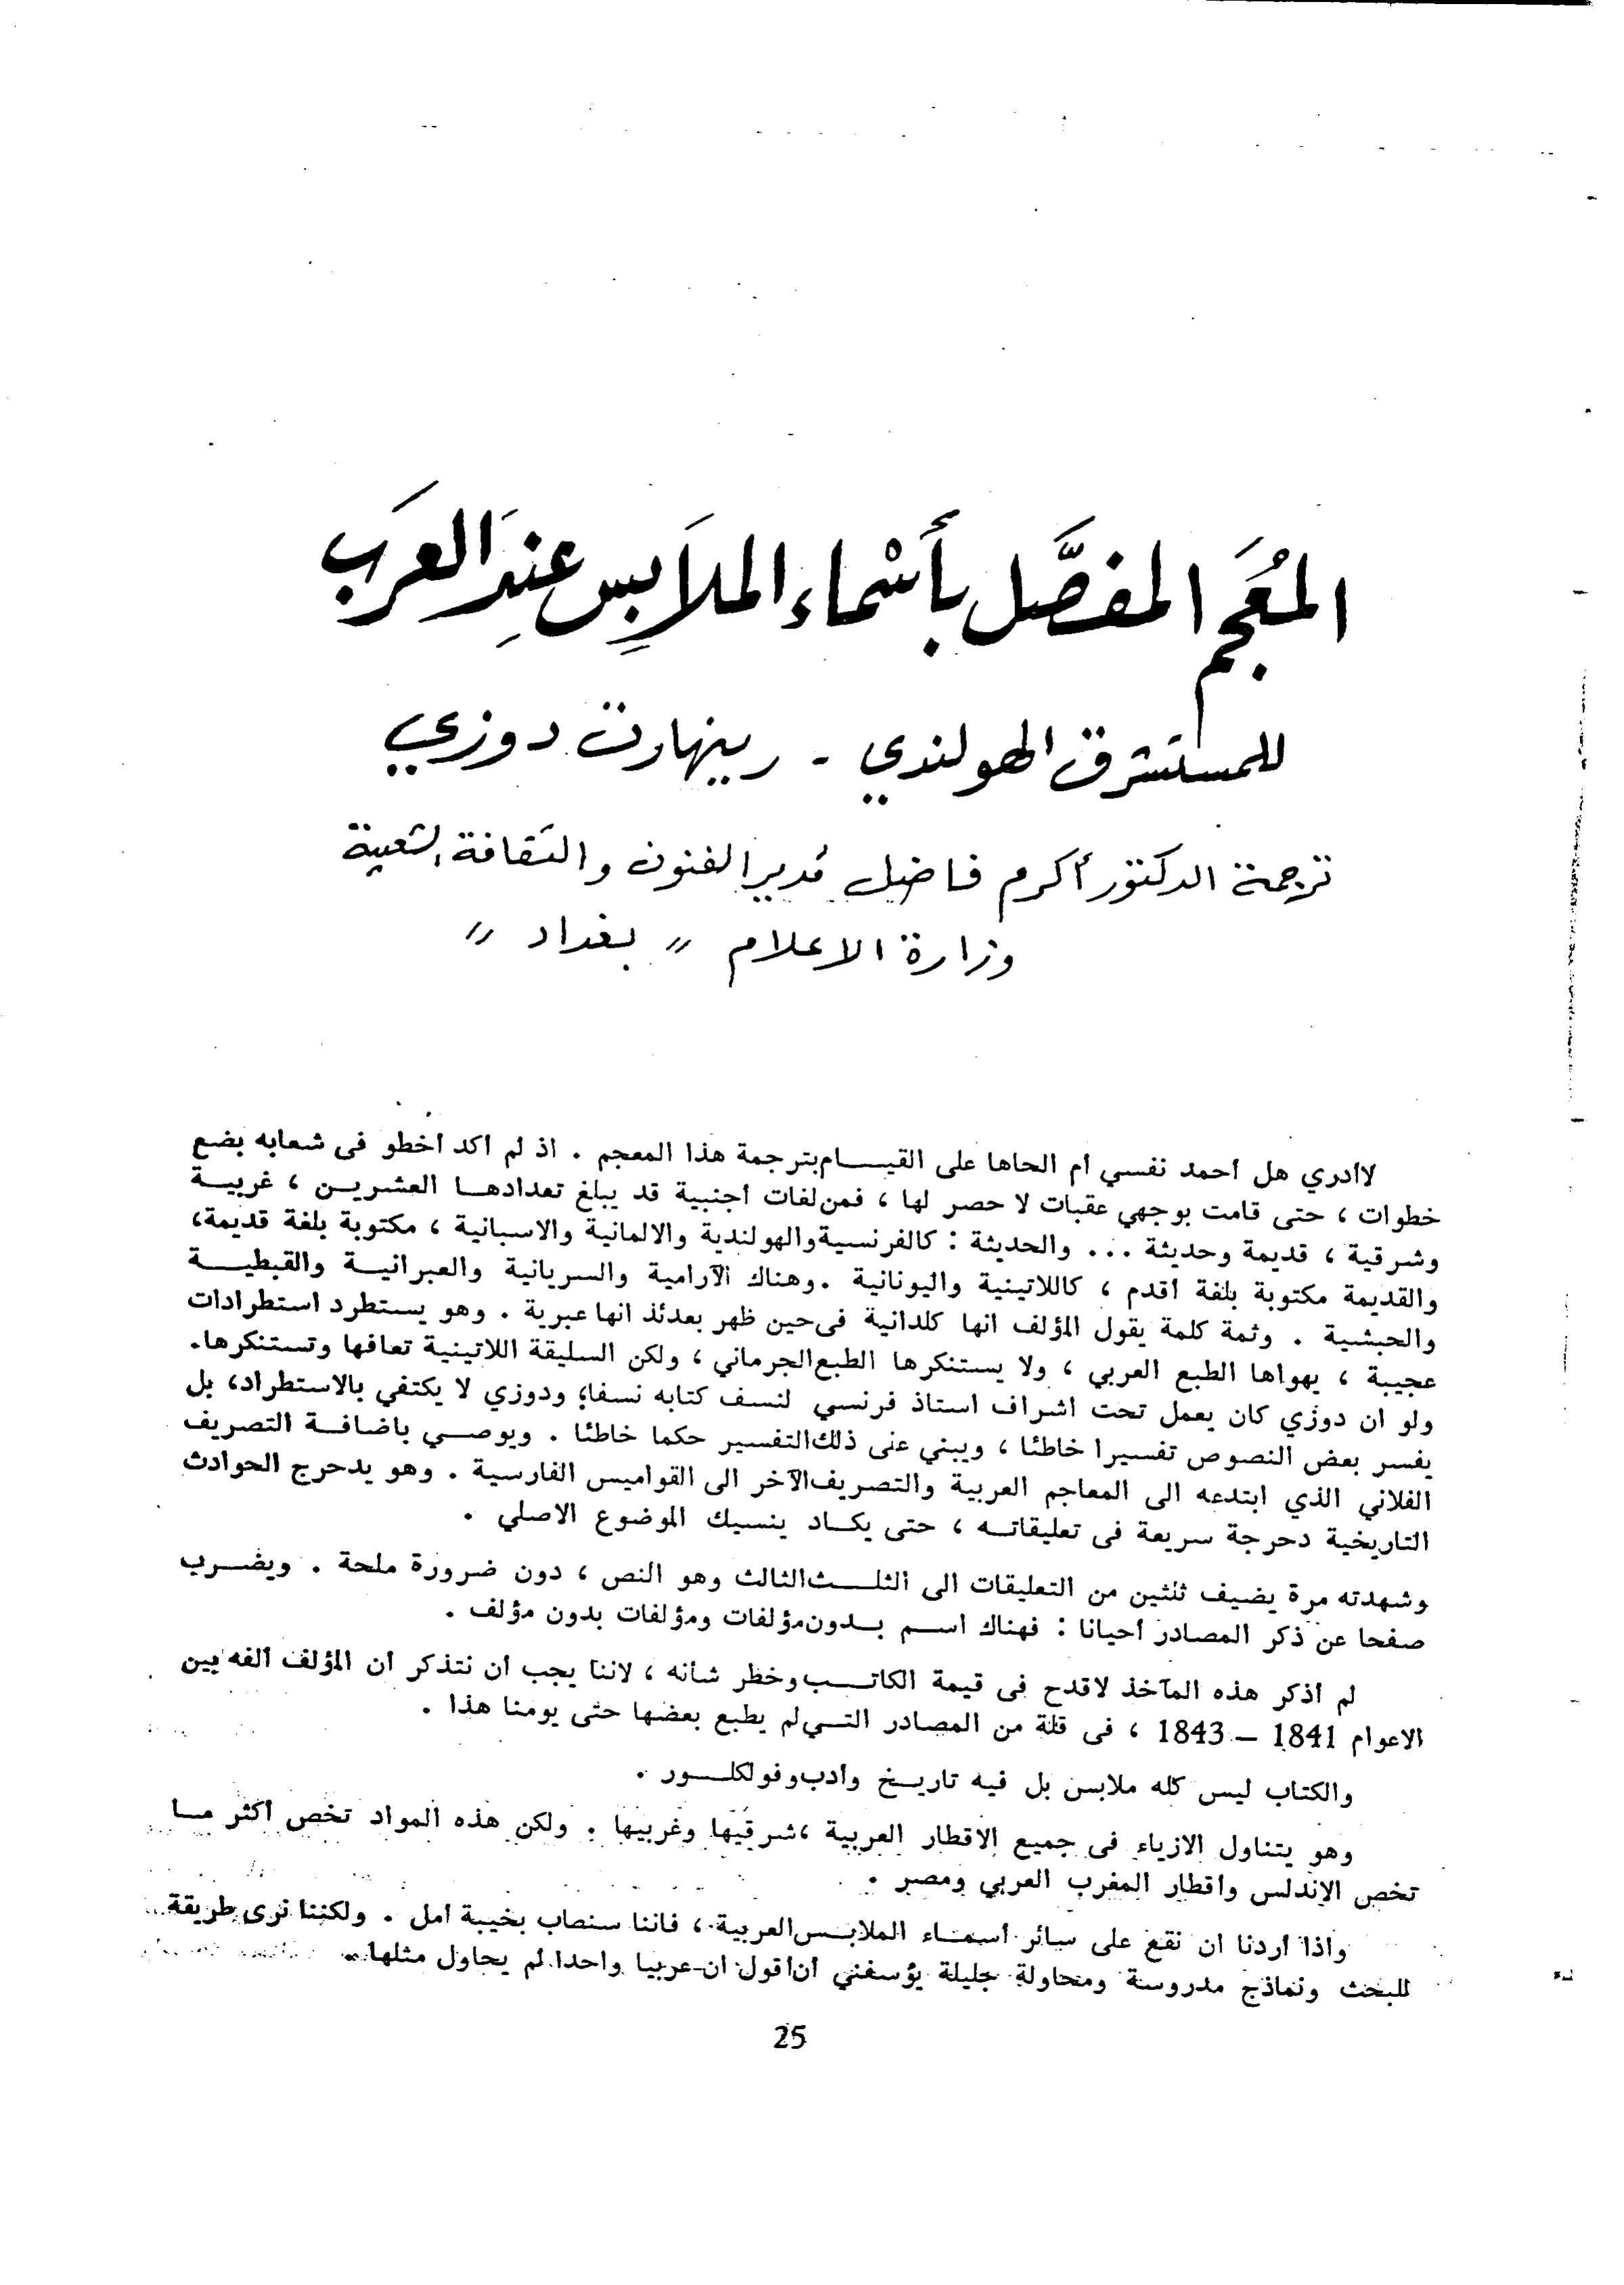 المُعجَم المفصَّل بأَسْماء الملاَبِس عِندَ العرَب
للمستشرق الهولندي - رينهارت دوزي
ترجمة الدكتور أكرم فاضل مُدير الفنون والثقافة الشعبية
وزارة الاعلام " بغداد "
لا أدري هل أحمد نفسي أم الحاها على القيام بترجمة هذا المعجم . اذ لم أكد أخطو فى شعابه بضع
خطوات ، حتى قامت بوجهي عقبات لا حصر لها ، فمن لغات أجنبية قد يبلغ تعدادها العشرين ، غربية
وشرقية ، قديمة وحديثة ... والحديثة : كالفرنسية والهولندية والالمانية والاسبانية ، مكتوبة بلغة قديمة،
والقديمة مكتوبة بلغة أقدم ، كاللاتينية واليونانية . وهناك الآرامية والسريانية والعبرانية والقبطية
والحبشية . وثمة كلمة يقول المؤلف انها كلدانية فى حين ظهر بعدئذ انها عبرية . وهو يستطرد استطرادات
عجيبة ، يهواها الطبع العربي ، ولا يستنكرها الطبع الجرماني ، ولكن السليقة اللاتينية تعافها وتستنكرها.
ولو ان دوزي كان يعمل تحت اشراف استاذ فرنسي لنسف كتابه نسفا؛ ودوزي لا يكتفي بالاستطراد، بل
يفسر بعض النصوص تفسيرا خاطئا ، ويبني على ذلك التفسير حكما خاطئا . ويوصي باضافة التصريف
الفلاني الذي ابتدعه الى المعاجم العربية والتصريف الآخر الى القواميس الفارسية . وهو يدحرج الحوادث
التاريخية دحرجة سريعة فى تعليقاته ، حتى يكاد ينسيك الموضوع الاصلي .
وشهدته مرة يضيف ثلثين من التعليقات الى الثلث الثالث وهو النص ، دون ضرورة ملحة . ويضرب
صفحا عن ذكر المصادر أحيانا : فهناك اسم بدون مؤلفات ومؤلفات بدون مؤلف .
لم أذكر هذه المآخذ لاقدح فى قيمة الكاتب وخطر شأنه ، لاننا يجب أن نتذكر أن المؤلف ألفه بين
الاعوام 1841 – 1843 ، فى قلة من المصادر التي لم يطبع بعضها حتى يومنا هذا .
والكتاب ليس كله ملابس بل فيه تاريخ وأدب وفولكلور .
وهو يتناول الازياء فى جميع الاقطار العربية ، شرقيها وغربيها . ولكن هذه المواد تخص أكثر ما
تخص الاندلس وأقطار المغرب العربي ومصر .
واذا أردنا أن نقع على سائر أسماء الملابس العربية ، فاننا سنصاب بخيبة أمل . ولكننا نرى طريقة
للبحث ونماذج مدروسة ومحاولة جليلة يؤسفني أن أقول ان عربيا واحدا لم يحاول مثلها .
25